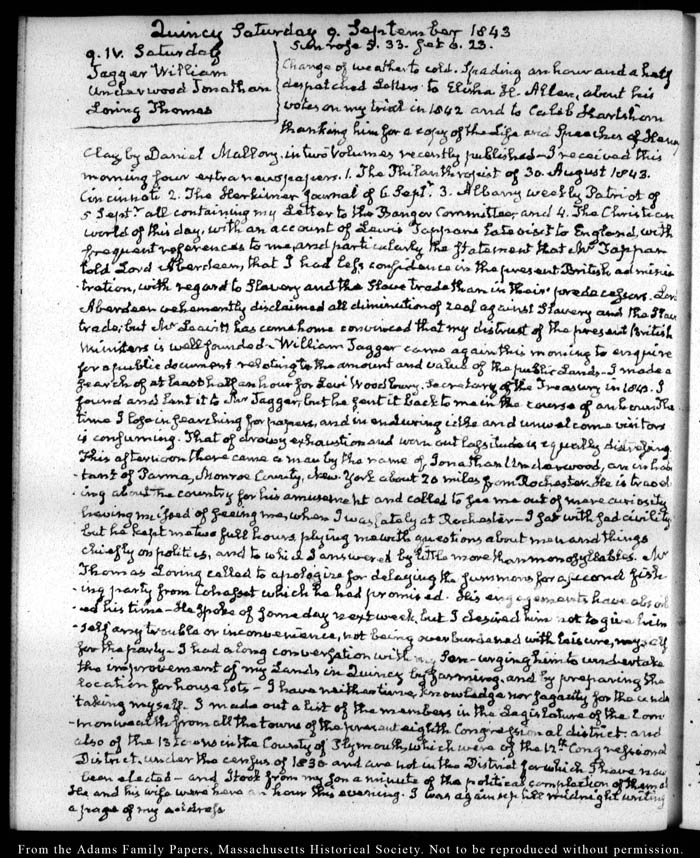 Quincy Saturday 9. September 1843
9. IV. Saturday
Jagger William
Underwood Jonathan
Loring Thomas
Sun rose 5. 33. set 6. 23.
Change of weather to cold. Reading an hour and a half
despatched Letters to Elisha H. Allen, about his
votes on my trial in 1842 and to Caleb Hartshorn
thanking him for a copy of the Life and Speeches of Henry
Clay by Daniel Mallory. in two Volumes recently published—I received this
morning four extra newspapers. 1. The Philanthropist of 30. August 1843.
Cincinnati 2. The Herkimer Journal of 6 Septr. 3. Albany weekly Patriot of
5 Septr. all containing my Letter to the Bangor Committee, and 4. The Christian
world of this day, with an account of Lewis Tappans late visit to England, with
frequent references to me, and particularly the Statement that Mr Tappan
told Lord Aberdeen, that I had less confidence in the present British adminis
tration, with regard to Slavery and the Slave trade than in their predecessors. Lord
Aberdeen vehemently disclaimed all diminution of zeal against Slavery and the Slave
trade; but Mr Leavitt has come home convinced that my distrust of the present British
Ministers is well founded—William Jagger came again this morning to enquire
for a public document relating to the amount and value of the public Lands—I made a
search of at least half an hour for Levi Woodbury, Secretary of the Treasury in I
found and lent it to Mr Jagger, but he sent it back to me in the course of an hour. The
time I lose in searching for papers, and in enduring idle and unwelcome visitors
is consuming. That of drowsy exhaustion and worn out lassitude is equally distressing.
This afternoon there came a man by the name of Jonathan Underwood, an inhabi
tant of Parma, Monroe County, New York about 20 miles from Rochester. He is travel
ing about the country for his amusement and called to see me out of mere curiosity
having miss'd of seeing me, when I was lately at Rochester—I sat with sad civility
but he kept me two full hours plying me with questions about men and things
chiefly on politics, and to which I answered by little more than monosyllables. Mr
Thomas Loring called to apologize for delaying the summons for a second fish
ing party from Cohasset which he had promised. His engagements have absorb
ed his time—He spoke of some day next week, but I desired him not to give him
self any trouble or inconvenience, not being overburdened with leisure, myself
for the party—I had a long conversation with my Son—urging him to undertake
the improvement of my Lands in Quincy by farming, and by preparing the
location for house lots—I have neither time, knowledge nor sagacity for the under
taking myself. I made out a list of the members in the Legislature of the Com
monwealth from all the towns of the present eighth Congressional district. and
also of the 13 towns in the County of Plymouth which were of the 12th Congressional
District, under the census of 1830 and are not in the District for which I have now
been elected—and I took from my son a minute of the political complection of them all
He and his wife were here an hour this evening. I was again up till midnight writing
a page of my address
From the Adams Family Papers, Massachusetts Historical Society. Not to be reproduced without permission.